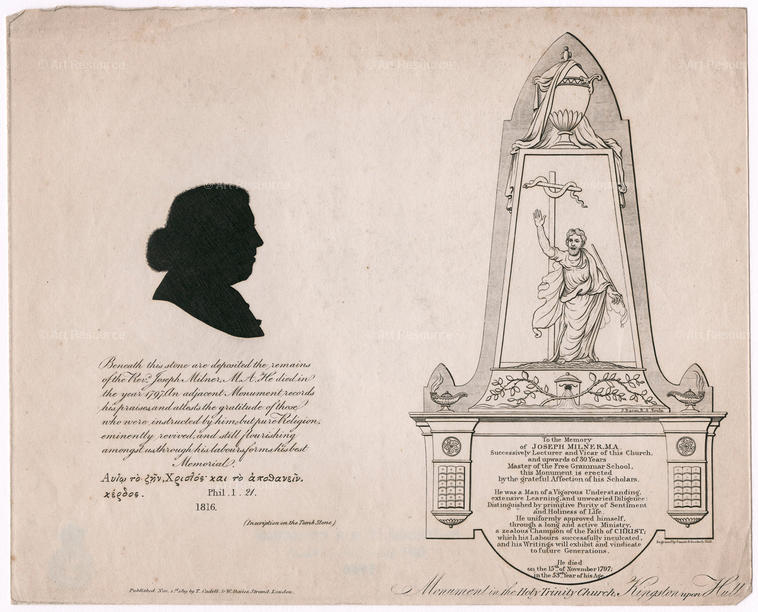 Beneath this stone are deposited the remains
of the Revd. Joseph Milner, M.A. He died in
the year 1797. An adjacent Monument records
his praises, and attests the gratitude of those
who were instructed by him, but pure Religion,
eminently revived, and still flourishing
amongst us through his labours, forms his best
Memorial.
Phil. 1. 21.
1816.
(Inscription on the Tomb Stone)
Published Nov. 1st 1819 by T. Cadell & W. Davies, Strand, London.
J. Bacon R.A. Sculp.
To the Memory
of JOSEPH MILNER, M.A.
Successively Lecturer and Vicar of this Church,
and upwards of 30 Years
Master of the Free Grammar School,
this Monument is erected
by the grateful Affection of his Scholars.
He was a Man of a Vigorous Understanding,
extensive Learning, and unwearied Diligence:
Distinguished by primitive Purity of Sentiment
and Holiness of Life.
He uniformly approved himself,
through a long and active Ministry,
a zealous Champion of the Faith of CHRIST;
which his Labours successfully inculcated,
and his Writings will exhibit and vindicate
to future Generations.
He died
on the 15th of November 1797;
in the 53rd Year of his Age.
Monument in the Holy Trinity Church, Kingston upon Hull
© Art Resource